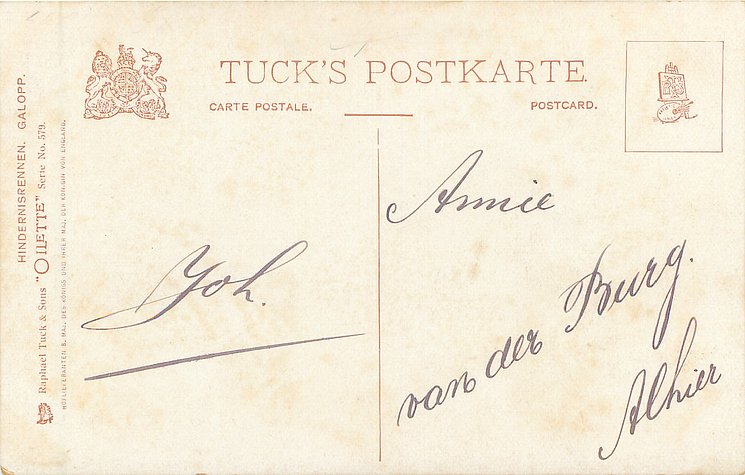 TUCK'S POSTKARTE.
CARTE POSTALE.
POSTCARD.
HINDERNISRENNEN. GALOPP.
Raphael Tuck & Sons "OILETTE" Serie No. 579.
HOFLIEFERANTEN S. MAJ. DES KÖNIGS UND IHRER MAJ. DER KÖNIGIN VON ENGLAND.
Joh.
Annie
van der Burg.
Alhier